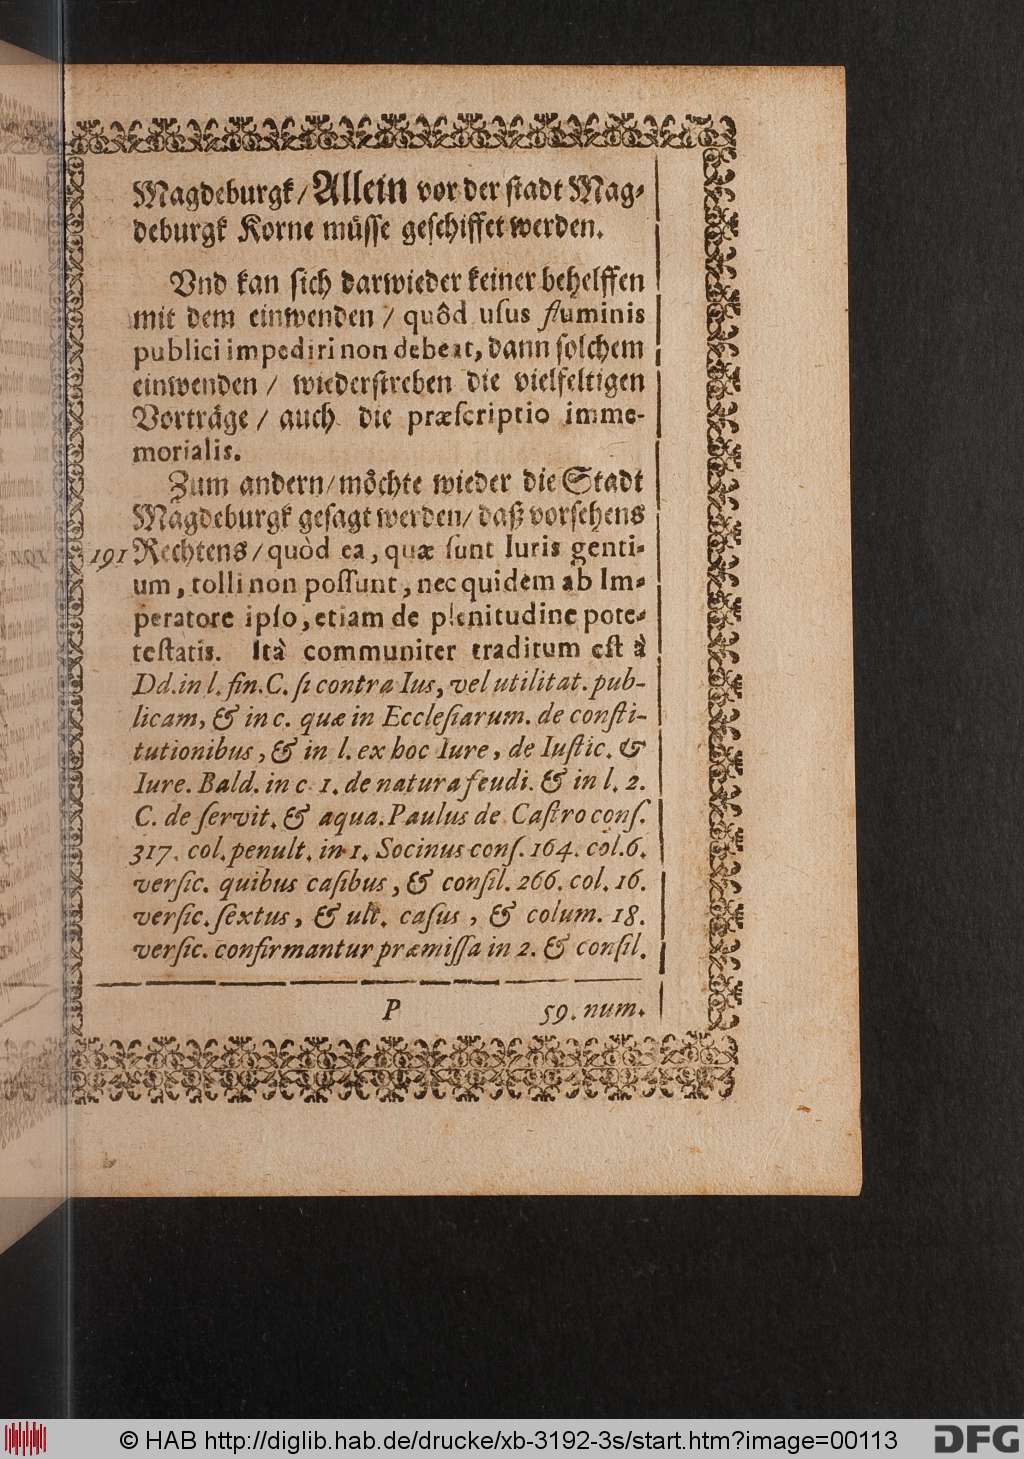 Magdeburgk/ Allein vor der stadt Mag-
deburgk Korne müsse geschiffet werden.
Vnd kan sich darwieder keiner behelffen
mit dem einwenden / quôd usus fluminis
publici impediri non debeat, dann solchem
einwenden / wiederstreben die vielfeltigen
Vorträge / auch die præscriptio imme-
morialis.
Zum andern/ möchte wieder die Stadt
Magdeburgk gesagt werden/ daß vorsehens
191 Rechtens / quòd ea, quæ sunt Iuris genti-
um, tolli non possunt, nec quidem ab Im-
peratore ipso, etiam de plenitudine pote-
testatis. Ità communiter traditum est à
Dd. in l. fin. C. si contra Ius, vel utilitat. pub-
licam, & in c. quæ in Ecclesiarum. de consti-
tutionibus, & in l. ex hoc Iure, de Iustic. &
Iure. Bald. in c. 1. de natura feudi. & in l. 2.
C. de servit. & aqua. Paulus de Castro cons.
317. col. penult. in 1. Socinus cons. 164. col. 6.
versic. quibus casibus, & consil. 266. col. 16.
versic. sextus, & ult. casus, & colum. 18.
versic. confirmantur præmissa in 2. & consil.
P 59. num.
© HAB http://diglib.hab.de/drucke/xb-3192-3s/start.htm?image=00113
DFG